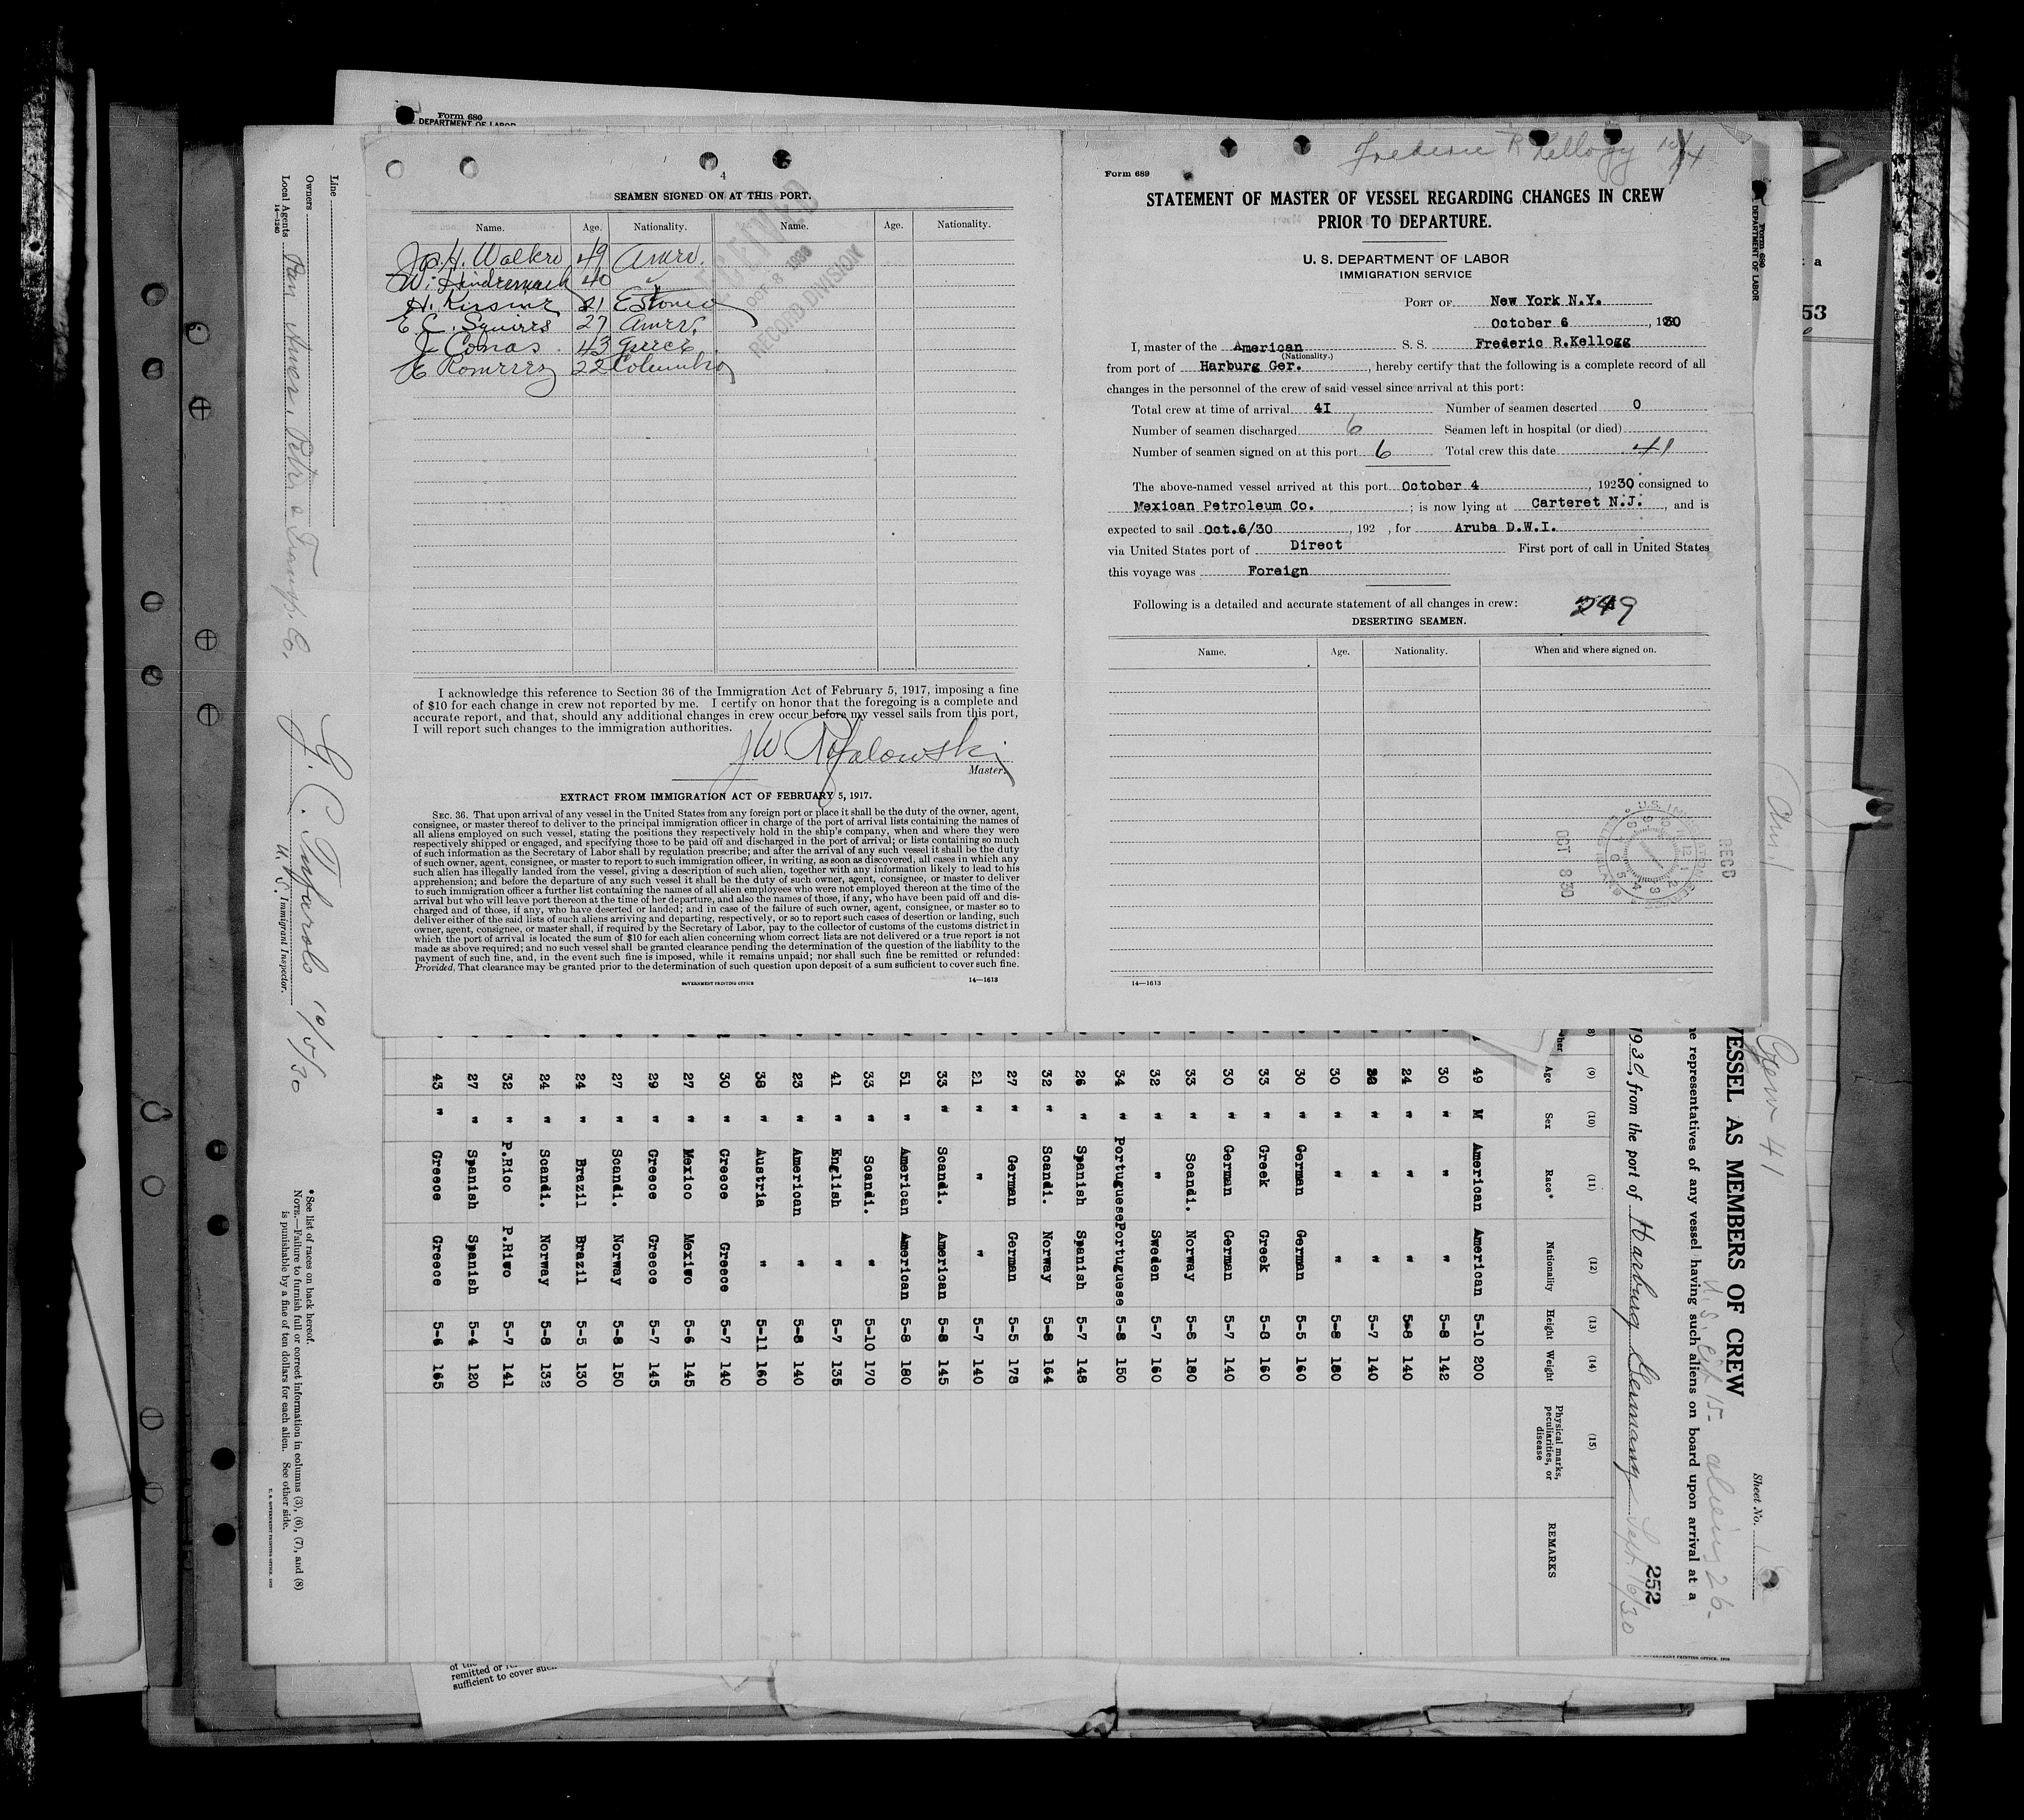 Form 680
DEPARTMENT OF LABOR
4
SEAMEN SIGNED ON AT THIS PORT.
Name. Age. Nationality. Name. Age. Nationality.
Jas H. Walker 49 Amer.
W. 40 "
H. 21 Estonia
E. C. Squires 27 Amer.
J Conas 43 Greece
E Romerez 22 Columbia
RECEIVED
OCT 8 1930
RECORD DIVISION
I acknowledge this reference to Section 36 of the Immigration Act of February 5, 1917, imposing a fine
of $10 for each change in crew not reported by me. I certify on honor that the foregoing is a complete and
accurate report, and that, should any additional changes in crew occur before my vessel sails from this port,
I will report such changes to the immigration authorities.
J W
Master.
EXTRACT FROM IMMIGRATION ACT OF FEBRUARY 5, 1917.
SEC. 36. That upon arrival of any vessel in the United States from any foreign port or place it shall be the duty of the owner, agent,
consignee, or master thereof to deliver to the principal immigration officer in charge of the port of arrival lists containing the names of
all aliens employed on such vessel, stating the positions they respectively hold in the ship's company, when and where they were
respectively shipped or engaged, and specifying those to be paid off and discharged in the port of arrival; or lists containing so much
of such information as the Secretary of Labor shall by regulation prescribe; and after the arrival of any such vessel it shall be the duty
of such owner, agent, consignee, or master to report to such immigration officer, in writing, as soon as discovered, all cases in which any
such alien has illegally landed from the vessel, giving a description of such alien, together with any information likely to lead to his
apprehension; and before the departure of any such vessel it shall be the duty of such owner, agent, consignee, or master to deliver
to such immigration officer a further list containing the names of all alien employees who were not employed thereon at the time of the
arrival but who will leave port thereon at the time of her departure, and also the names of those, if any, who have been paid off and dis-
charged and of those, if any, who have deserted or landed; and in case of the failure of such owner, agent, consignee, or master so to
deliver either of the said lists of such aliens arriving and departing, respectively, or so to report such cases of desertion or landing, such
owner, agent, consignee, or master shall, if required by the Secretary of Labor, pay to the collector of customs of the customs district in
which the port of arrival is located the sum of $10 for each alien concerning whom correct lists are not delivered or a true report is not
made as above required; and no such vessel shall be granted clearance pending the determination of the question of the liability to the
payment of such fine, and, in the event such fine is imposed, while it remains unpaid; nor shall such fine be remitted or refunded:
Provided, That clearance may be granted prior to the determination of such question upon deposit of a sum sufficient to cover such fine.
GOVERNMENT PRINTING OFFICE 14—1613
Frederic R Kellogg 10/4
Form 689
STATEMENT OF MASTER OF VESSEL REGARDING CHANGES IN CREW
PRIOR TO DEPARTURE.
U. S. DEPARTMENT OF LABOR
IMMIGRATION SERVICE
PORT OF New York N.Y.
October 6, 1930
I, master of the American S. S. Frederic R.Kellogg
(Nationality.)
from port of Harburg Ger., hereby certify that the following is a complete record of all
changes in the personnel of the crew of said vessel since arrival at this port:
Total crew at time of arrival 4I Number of seamen deserted 0
Number of seamen discharged 6 Seamen left in hospital (or died)
Number of seamen signed on at this port 6 Total crew this date 41
The above-named vessel arrived at this port October 4, 19230 consigned to
Mexican Petroleum Co.; is now lying at Carteret N.J., and is
expected to sail Oct.6/30, 192 , for Aruba D.W.I.
via United States port of Direct First port of call in United States
this voyage was Foreign
Following is a detailed and accurate statement of all changes in crew: 249
DESERTING SEAMEN.
Name. Age. Nationality. When and where signed on.
REC'D
OCT 8 30
14—1613
53
Form 680
DEPARTMENT OF LABOR
Crew 41
Sheet No. 1
VESSEL AS MEMBERS OF CREW
U.S. Cit 15- aliens 26-
he representatives of any vessel having such aliens on board upon arrival at a
252
1930, from the port of Harburg Germany Sept 16/30
(9) (10) (11) (12) (13) (14) (15)
Age Sex Race* Nationality Height Weight Physical marks, peculiarities, or disease REMARKS
49 M American American 5-10 200
30 " " " 5-8 142
24 " " " 5-8 140
" " " 5-7 140
30 " " " 5-8 180
30 " German German 5-5 160
33 " Greek Greek 5-8 160
30 " German German 5-7 140
33 " Scandi. Norway 5-8 190
32 " " Sweden 5-7 160
34 " Portuguese Portuguese 5-8 150
26 " Spanish Spanish 5-7 148
32 " Scandi. Norway 5-8 164
27 " German German 5-5 178
21 " " " 5-7 140
33 " Scandi. American 5-8 145
51 " American American 5-8 180
33 " Scandi. " 5-10 170
41 " English " 5-7 135
23 " American " 5-8 140
38 " Austria " 5-11 160
30 " Greece Greece 5-7 140
27 " Mexico Mexico 5-6 145
29 " Greece Greece 5-7 145
27 " Scandi. Norway 5-8 150
24 " Brazil Brazil 5-5 130
24 " Scandi. Norway 5-8 132
32 " P.Rico P.Rico 5-7 141
27 " Spanish Spanish 5-4 120
43 " Greece Greece 5-6 165
Line
Owners
Local Agents Pan Amer. Petr. & Transp. Co.
14—1240
10/5/30
U. S. Immigrant Inspector.
*See list of races on back hereof.
NOTE.—Failure to furnish full or correct information in columns (3), (6), (7), and (8)
is punishable by a fine of ten dollars for each alien. See other side.
U. S. GOVERNMENT PRINTING OFFICE
remitted or
sufficient to cover such